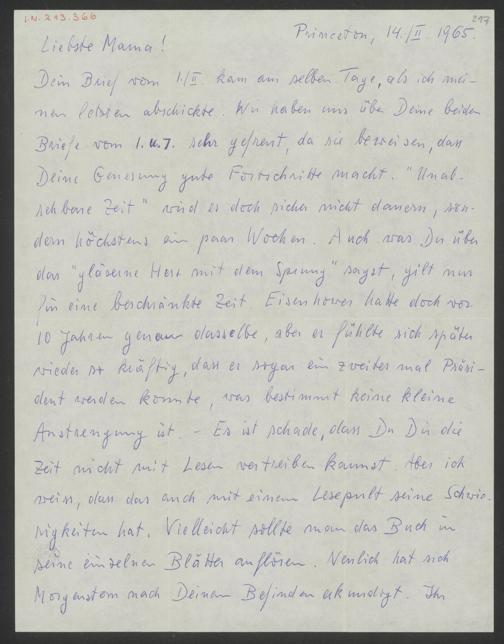 I.N. 213.366
217
Princeton, 14./II. 1965.
Liebste Mama!
Dein Brief vom 1./II. kam am selben Tage, als ich mei-
nen letzten abschickte. Wir haben uns über Deine beiden
Briefe vom 1. u. 7. sehr gefreut, da sie beweisen, dass
Deine Genesung gute Fortschritte macht. "Unab-
sehbare Zeit" wird es doch sicher nicht dauern, son-
dern höchstens ein paar Wochen. Auch was Du über
das "gläserne Herz mit dem Sprung" sagst, gilt nur
für eine beschränkte Zeit. Eisenhower hatte doch vor
10 Jahren genau dasselbe, aber er fühlte sich später
wieder so kräftig, dass er sogar ein zweites mal Präsi-
dent werden konnte, was bestimmt keine kleine
Anstrengung ist. – Es ist schade, dass Du Dir die
Zeit nicht mit Lesen vertreiben kannst. Aber ich
weiss, dass das auch mit einem Lesepult seine Schwie-
rigkeiten hat. Vielleicht sollte man das Buch in
seine einzelnen Blätter auflösen. Neulich hat sich
Morgenstern nach Deinem Befinden erkundigt. Ihr